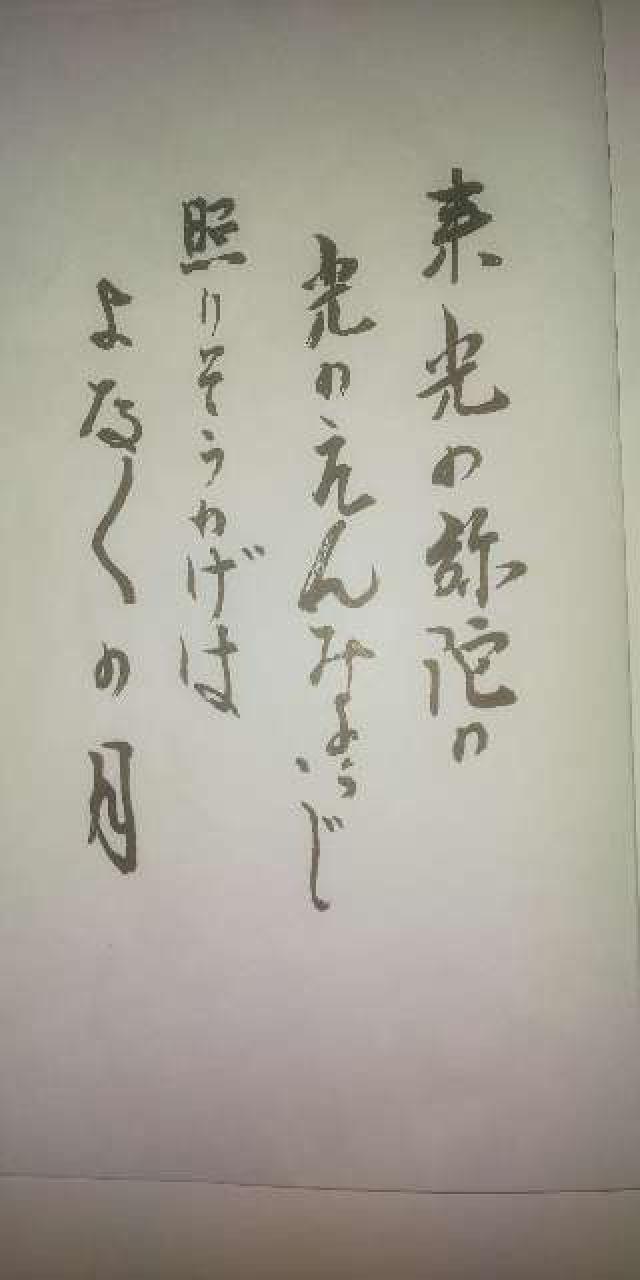 来光の弥陀の
光のえんみょうじ
照りそうわげは
よな〳〵の月